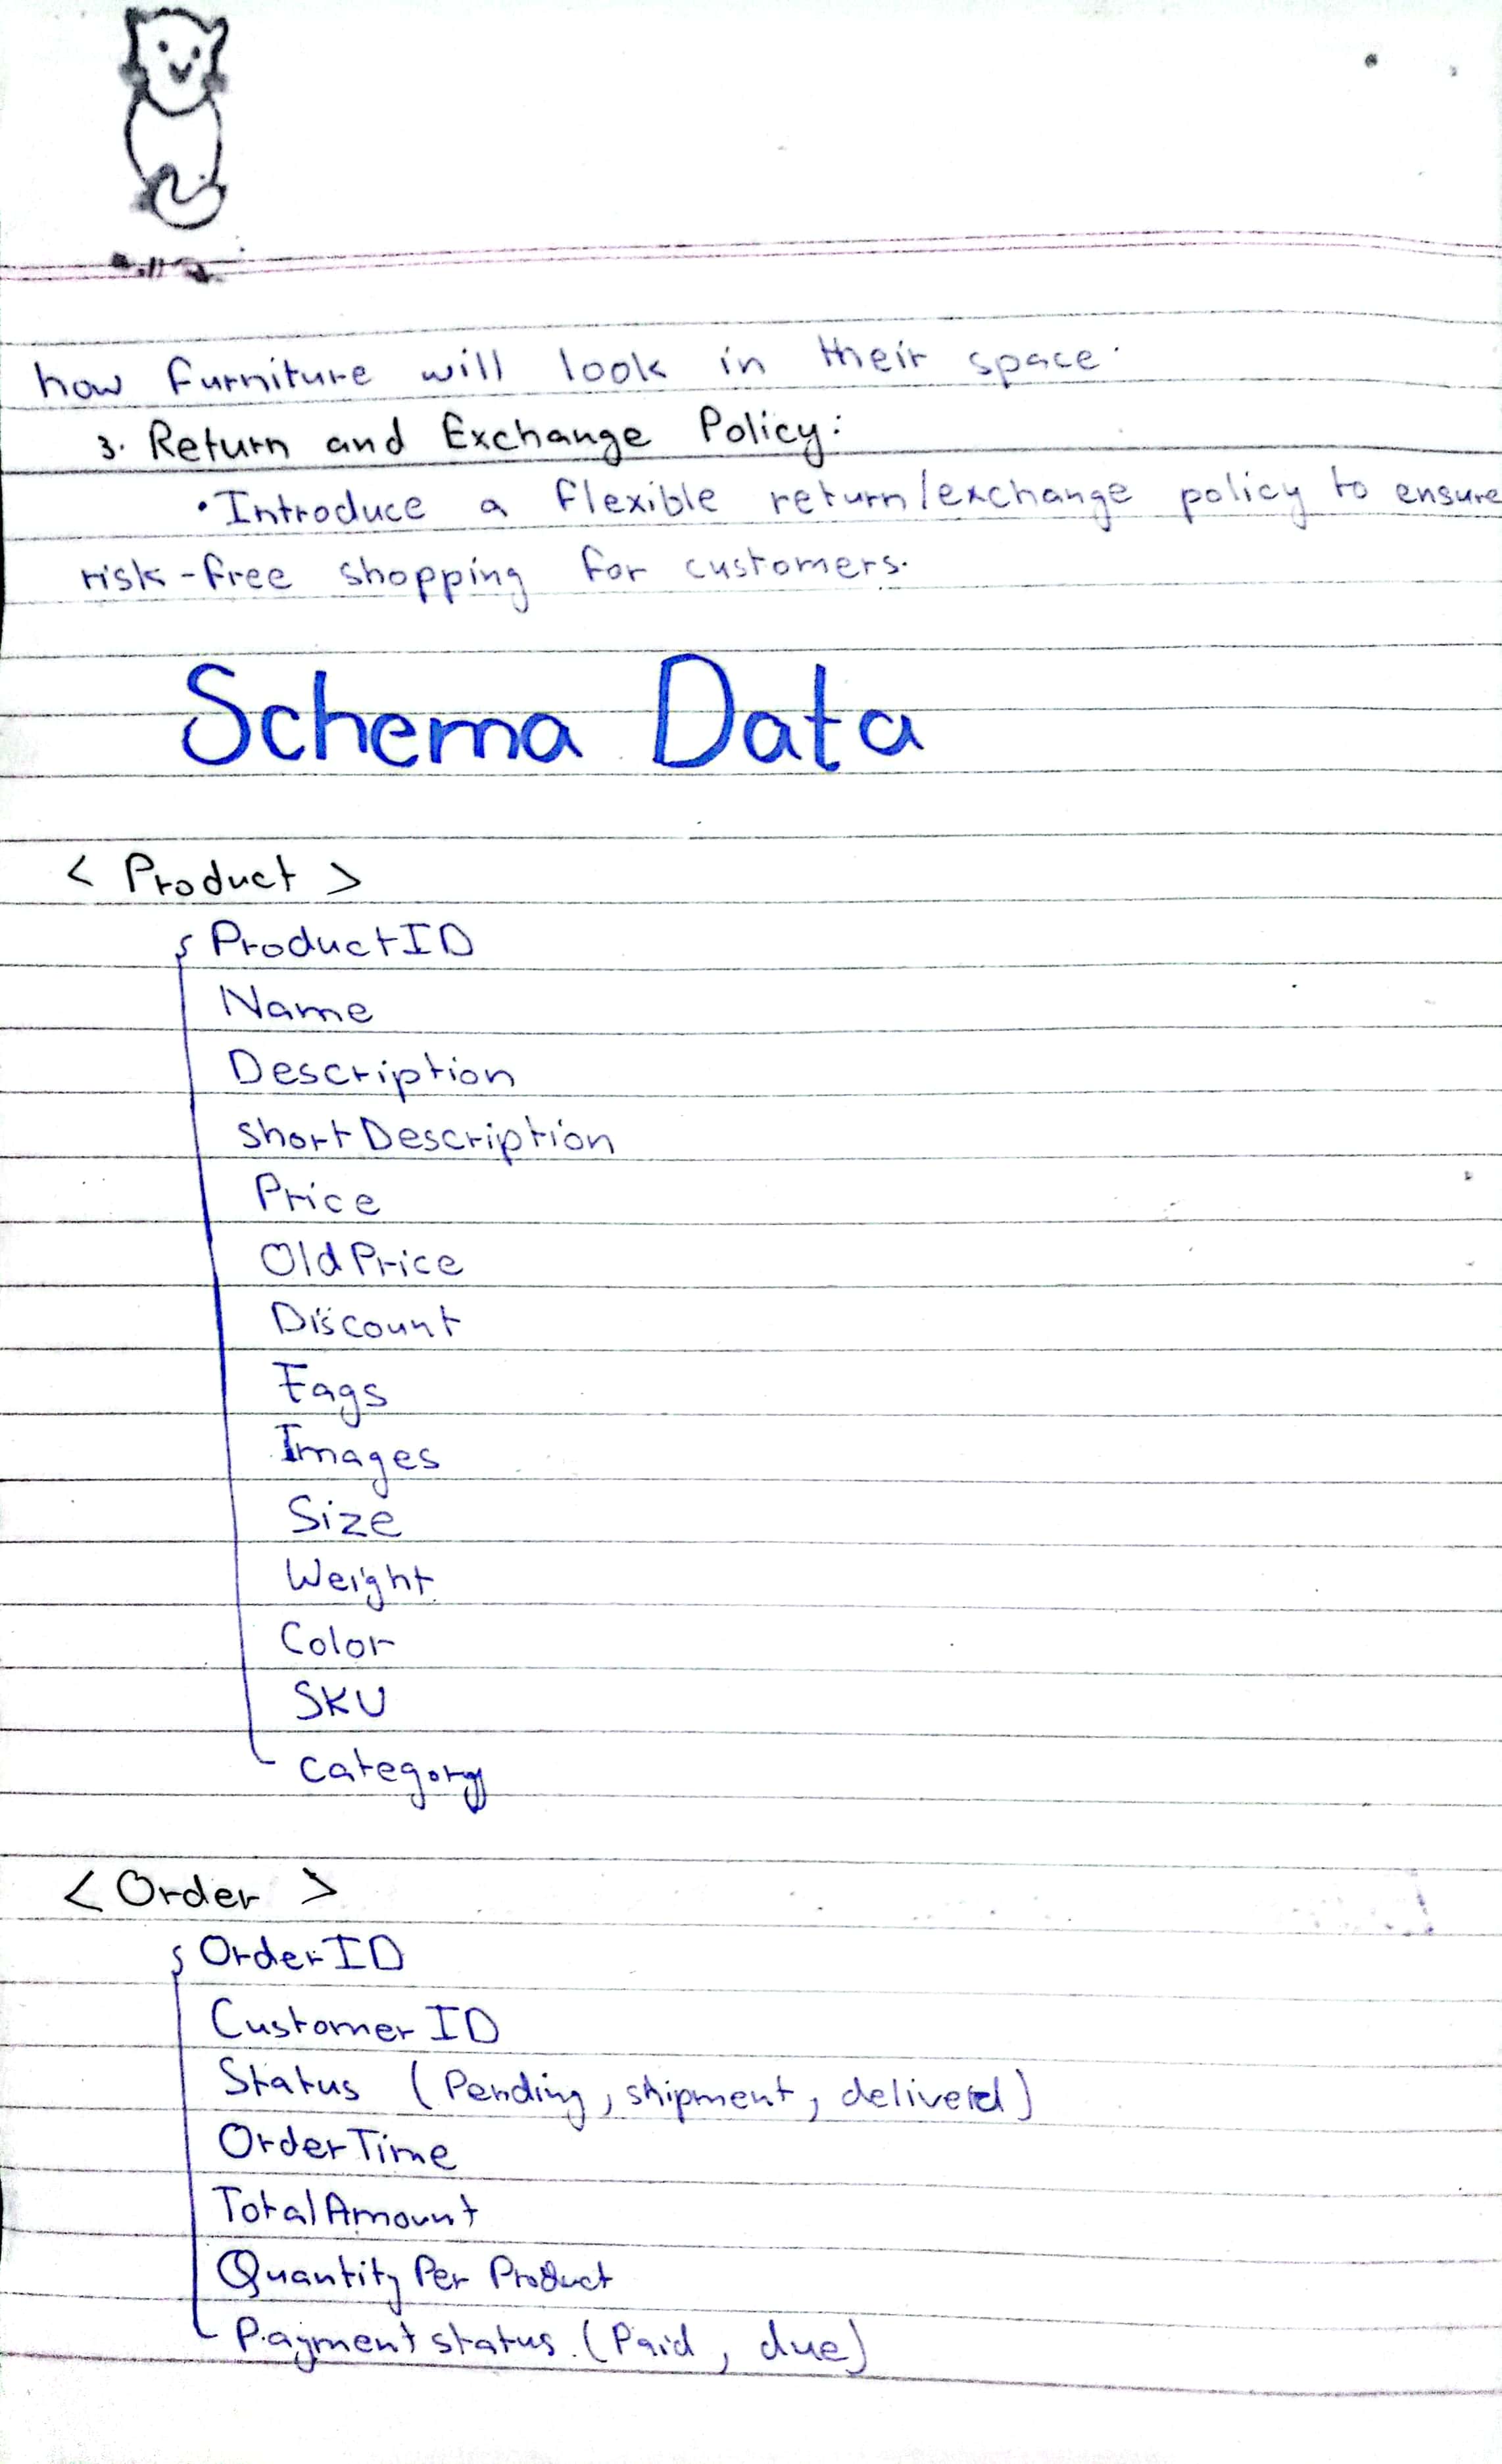 how furniture will look in their space.
3. Return and Exchange Policy:
• Introduce a flexible return/exchange policy to ensure
risk-free shopping for customers.
Schema Data
< Product >
ProductID
Name
Description
shortDescription
Price
OldPrice
Discount
Tags
Images
Size
Weight
Color
SKU
Category
< Order >
OrderID
CustomerID
Status (Pending, shipment, deliverd)
OrderTime
TotalAmount
Quantity Per Product
Paymentstatus. (Paid, due)